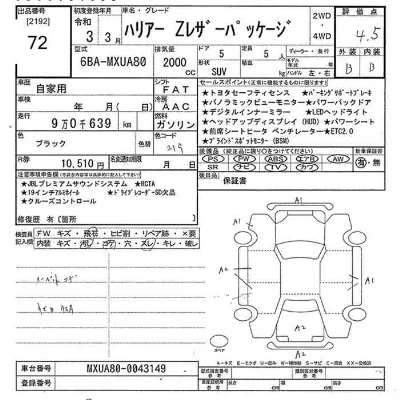 出品番号 [2192] 72
初度登録年月 令和 3年 3月
車名・グレード ハリアー Zレザーパッケージ
2WD・4WD
評価点 4.5
型式 6BA-MXUA80
排気量 2000 cc
ドア 5 ド 定員 5 人
形状 SUV
ディーラー・並行
モデル年式 年
ハンドル 左・右
外装 B 内装 B
車歴 自家用
シフト FAT
車検 年 月(日)
冷房 AAC
走行 9万0千639 km
燃料 ガソリン
色 ブラック
色替
カラーNo. 219
R券 10,510円
名変期限 月 日
セールスポイント(正常に機能するものに限ります)
★トヨタセーフティセンス ★パーキングサポートブレーキ
★パノラミックビューモニター★パワーバックドア
★デジタルインナーミラー ★LEDヘッドライト
★ヘッドアップディスプレイ(HUD) ★パワーシート
★前席シートヒータ ベンチレーター★ETC2.0
★ブラインドスポットモニター(BSM)
装備品
PS PW ABS エアB AW
SR ナビ TV カワ
新車保証書 有・無
保証書
注意事項申告欄
★JBLプレミアムサウンドシステム ★RCTA
★19インチアルミホイール ★ドライブレコーダーSD欠品
★クルーズコントロール
修復歴 有 [箇所 ]
検査員記入欄
FW キズ・飛石・ヒビ割・リペア跡・×要
内装 キズ・汚レ・コゲ・穴・ズレ・キレ・破レ
A1
A1
A1
A2
A2
スペア
A-キズ E-エクボ U-凹み W-補修跡 S-サビ C-腐食 XX-交換済
車台番号 MXUA80-0043149
登録番号
長さ cm 幅 cm 高さ cm